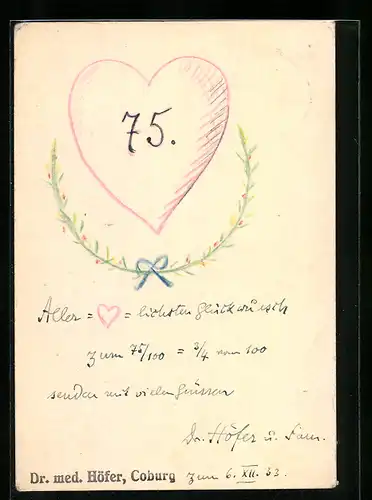 75.
Aller = ♡ = lichsten Glückwunsch
zum 75/100 = 3/4 von 100
senden mit vielen Grüssen
Dr. Höfer u. Fam.
Dr. med. Höfer, Coburg zum 6. XII. 53.